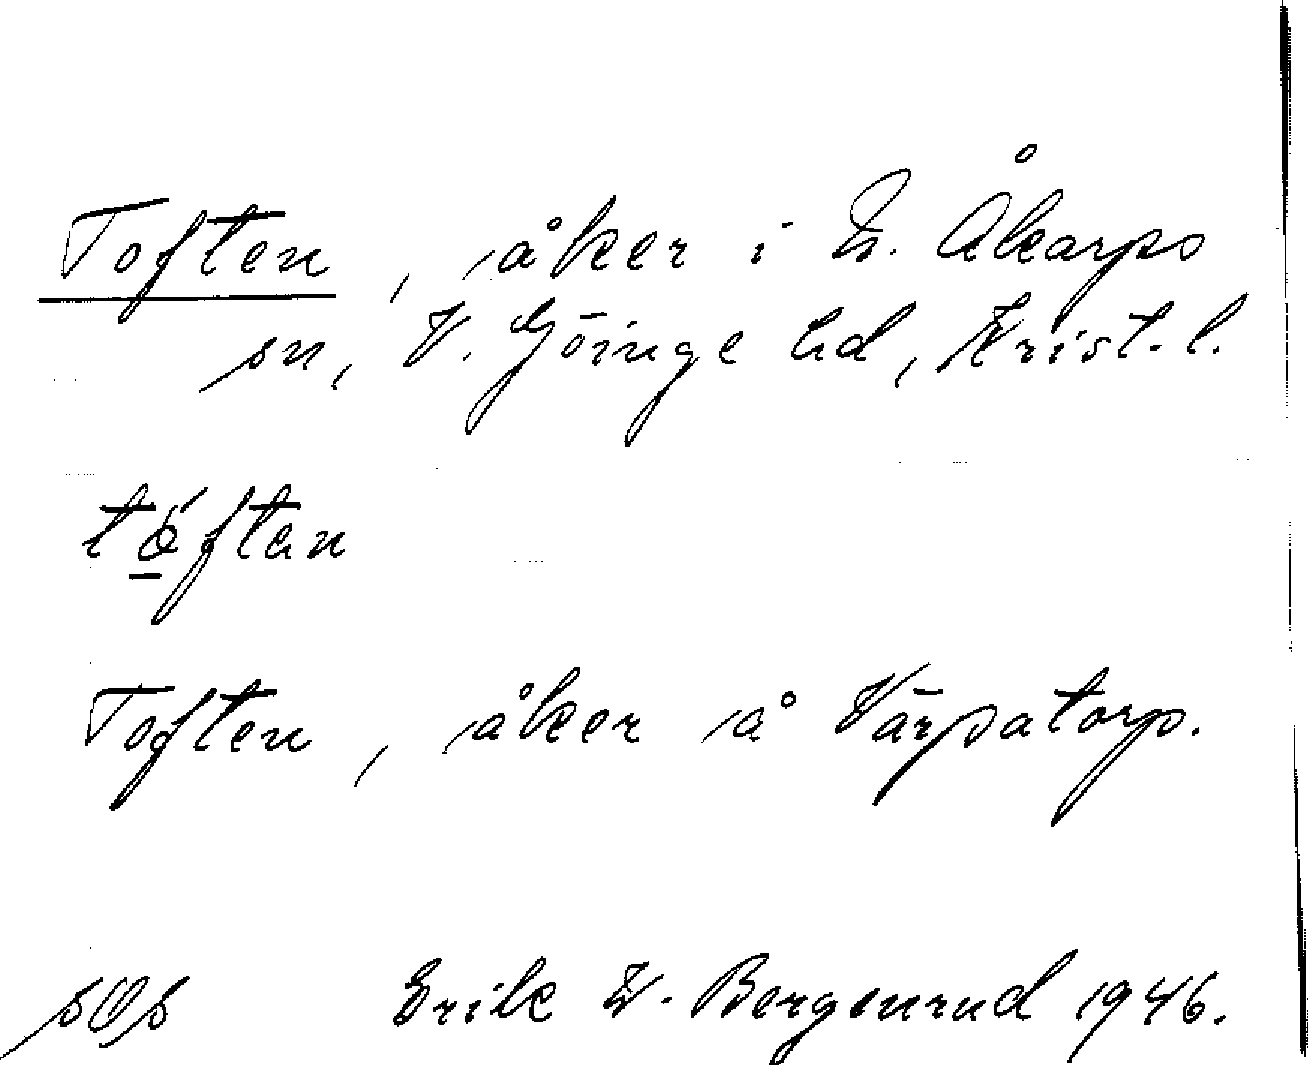 Toften, åker i N. Åkarps
sn, V. Göinge hd, Krist. l.
tóftan
Toften, åker å Värpatorp.
Erik W. Bergenrud 1946.